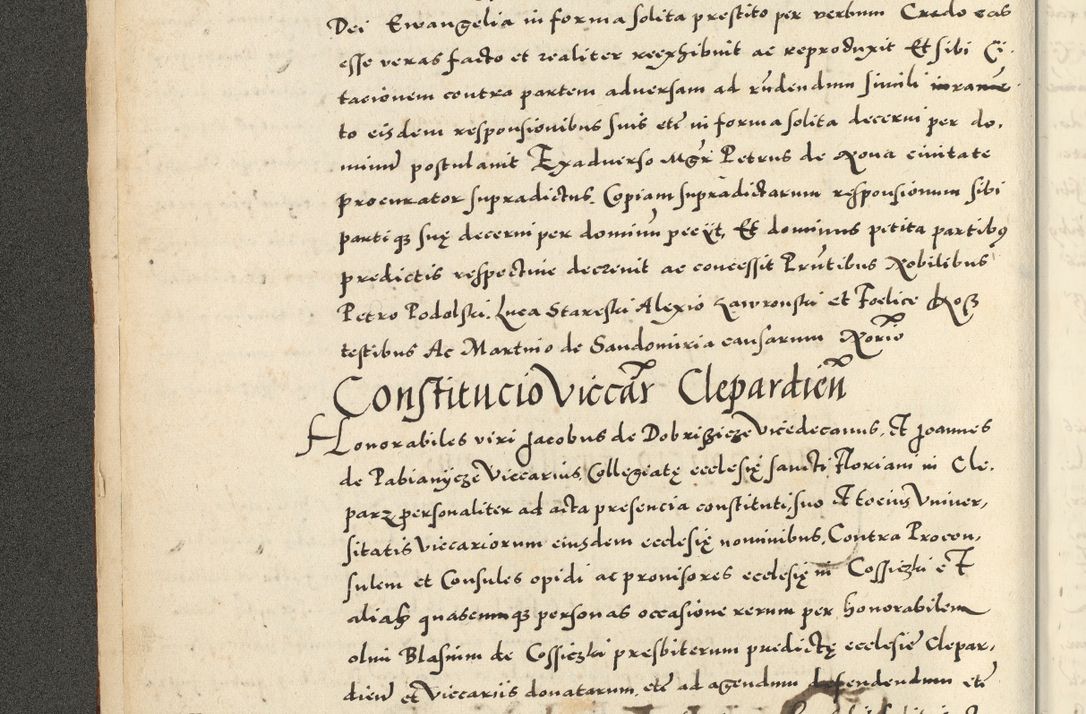 Dei Ewangelia in forma solita prestito per verbum Credo eas
esse veras facto et realiter reexhibuit ac reproduxit Et sibi Ci-
tacionem contra partem adversam ad rñdendum simili
to eisdem responsionibus suis etc̃ in forma solita decerni per do-
minũ postulavit Exadverso Mgr̃ Petrus de Nova civitate
procurator supradictus. Copiam supradictarum responsionum sibi
partiqz suę decerni per dominũ peciit, Et dominus petita partibus
predictis respective decrevit ac concessit Prñtibus Nobilibus
Petro Podolski. Luca Stareski Alexio Zawronski et Foelice
testibus Ac Martino de Sandomiria causarum Norio
Constitucio Viccar̃ Clepardieñ
Honorabiles viri Jacobus de Dobrisicze Vicedecanus, Et Joannes
de Pabianycze Viccarius, Collegiatę ecclesię sancti Floriani in Cle-
parz personaliter ad acta presencia constituti, suo Et tocius Univer-
sitatis Viccariorum eiusdem ecclesię nominibus, Contra Procon-
sulem et Consules opidi ac provisores ecclesię in Cossiczki et
alias quascumqz personas occasione rerum per honorabilem
olim Blasium de Cossiczki presbiterum predictę ecclesie Clepar-
dieñ et Viccariis donatarum, etc̃ ad agendum defendendum etc̃